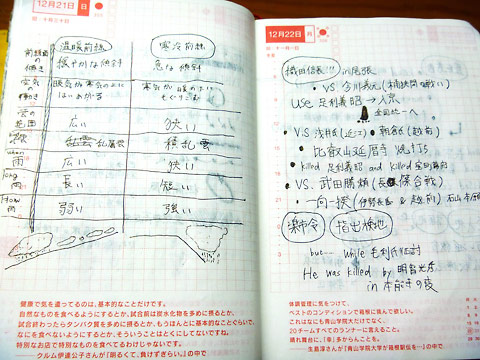 12月21日 日
温暖前線
寒冷前線
前線面の傾き
緩やかな傾斜
急な傾斜
空気の動き
暖気が寒気の上にはいあがる
寒気が暖気の下にもぐりこむ
雲の範囲
広い
狭い
乱層雲
積乱雲
雨
広い
狭い
long
雨
長い
短い
How
雨
弱い
強い
健康で気を遣ってるのは、基本的なことだけです。
自然なものを食べるようにするとか、試合前は炭水化物を多めに摂るとか、
試合終わったらタンパク質を多めに摂るとか、もうほんとに基本的なことぐらいで、
なにを食べないようにするとか、そういうことはとくにしてないですね。
特別なお店で特別なものを食べてない。
クルム伊達公子さんが『明るくて、負けずぎらい。』の中で
12月22日 月
織田信長!!! in 尾張
・VS. 今川義元(桶狭間の戦い)
use 足利義昭→入京
全国統一へ
・VS 浅井長政(近江)・朝倉氏(越前)
・比叡山延暦寺 焼き打ち
・killed 足利義昭 and killed 室町幕府
・VS. 武田勝頼(長篠合戦)
・一向一揆(伊勢長島&越前)石山本願
楽市令
指出検地
but... while 毛利氏征討
He was killed by 明智光秀
in 本能寺の変
体調管理に気をつけて、
ベストのコンディションで箱根に挑んで欲しい。
これはなにも青山学院大だけでなく、
20チームすべてのランナーに言えること。
晴れ舞台に、「幸」多からんことを。
生島淳さんが『青山学院大学が箱根駅伝を…』の中で